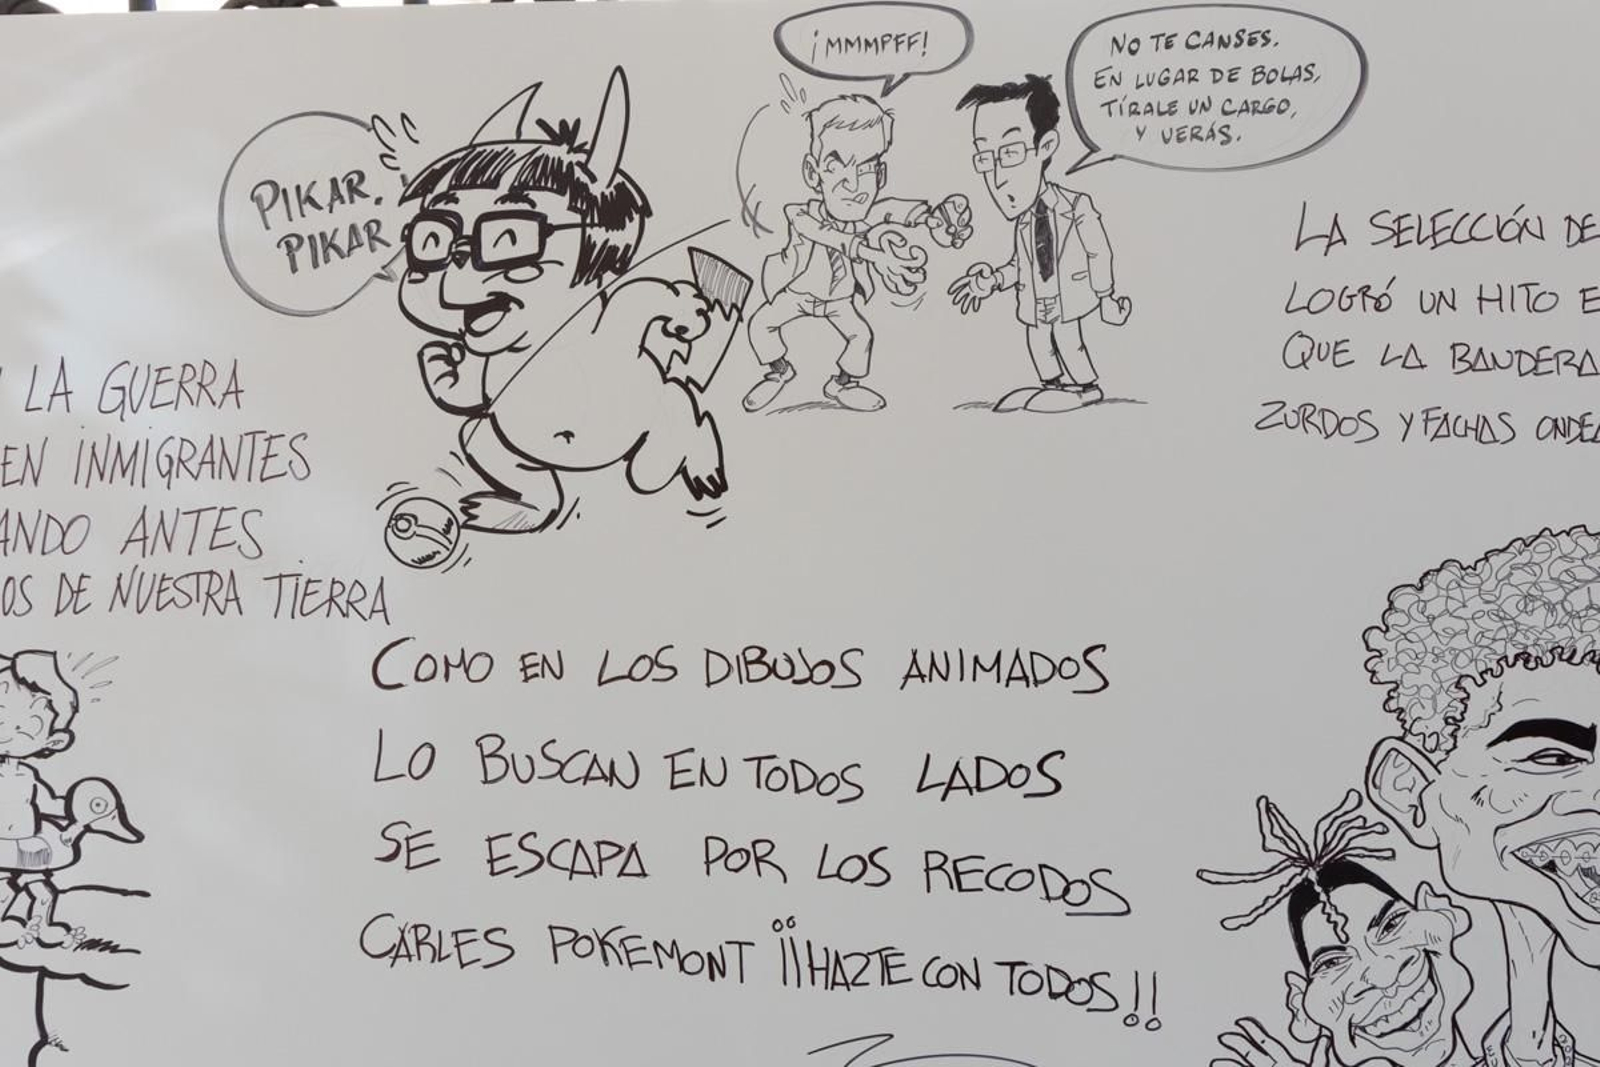 ¡MMMPFF!
NO TE CANSES.
EN LUGAR DE BOLAS,
TÍRALE UN CARGO,
Y VERÁS.
PIKAR,
PIKAR
LA SELECCIÓN DE
LOGRÓ UN HITO E
QUE LA BANDERA
ZURDOS Y FACHAS ONDEA
LA GUERRA
EN INMIGRANTES
ANDO ANTES
OS DE NUESTRA TIERRA
COMO EN LOS DIBUJOS ANIMADOS
LO BUSCAN EN TODOS LADOS
SE ESCAPA POR LOS RECODOS
CARLES POKEMONT ¡¡HAZTE CON TODOS!!